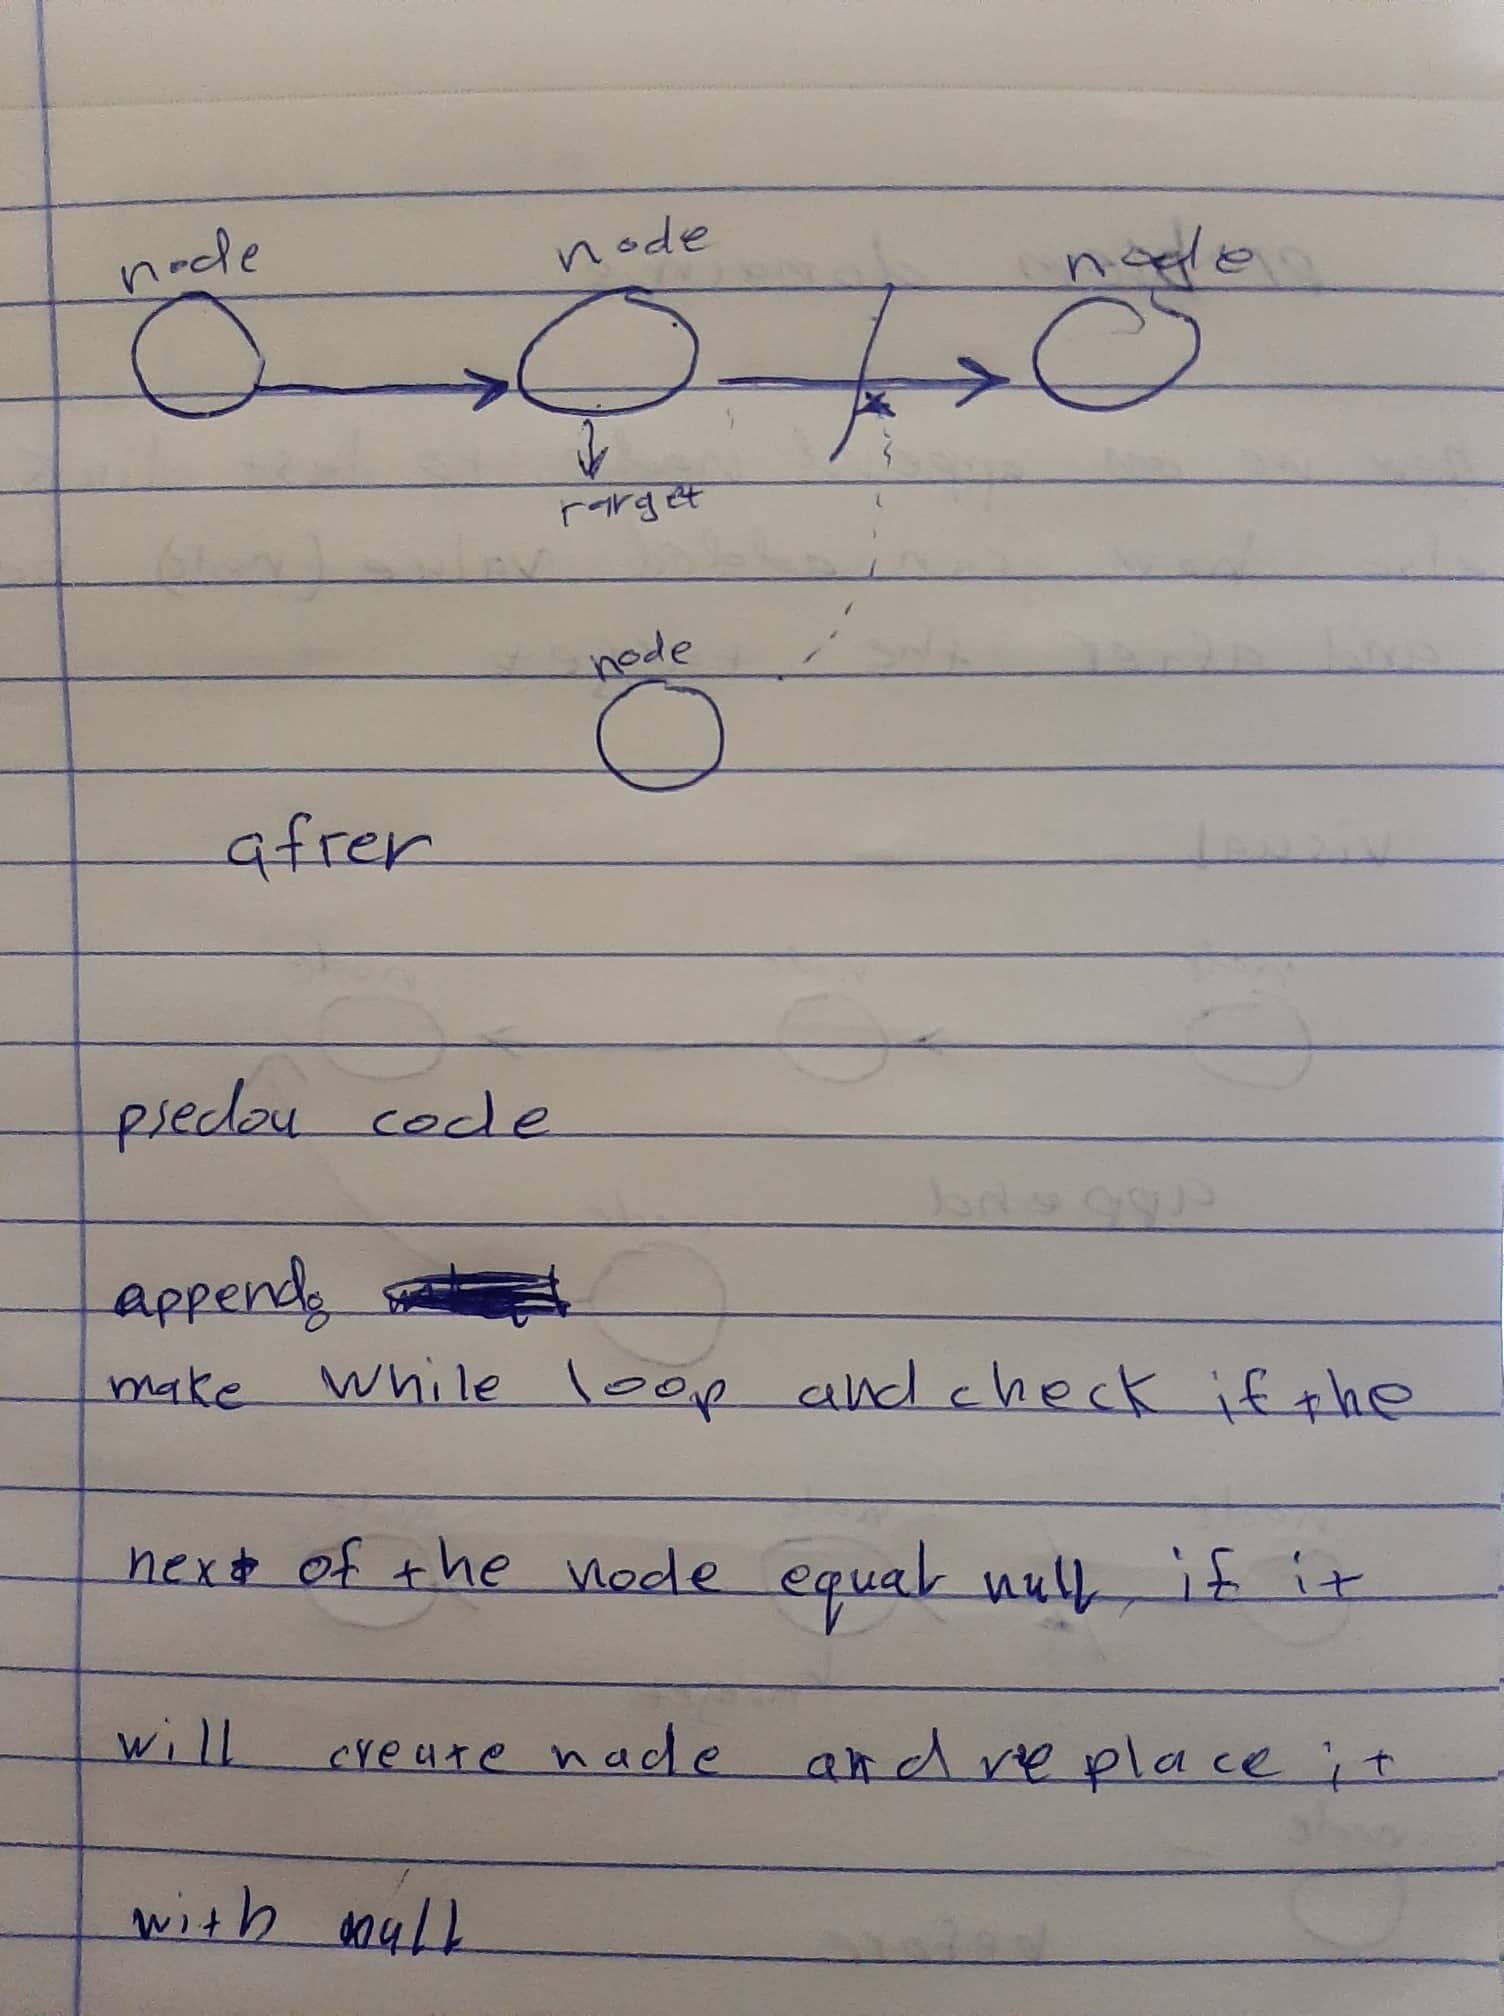 node node node
target
node
after
psedou code
append:
make while loop and check if the
next of the node equal null, if it
will create node and replace it
with null